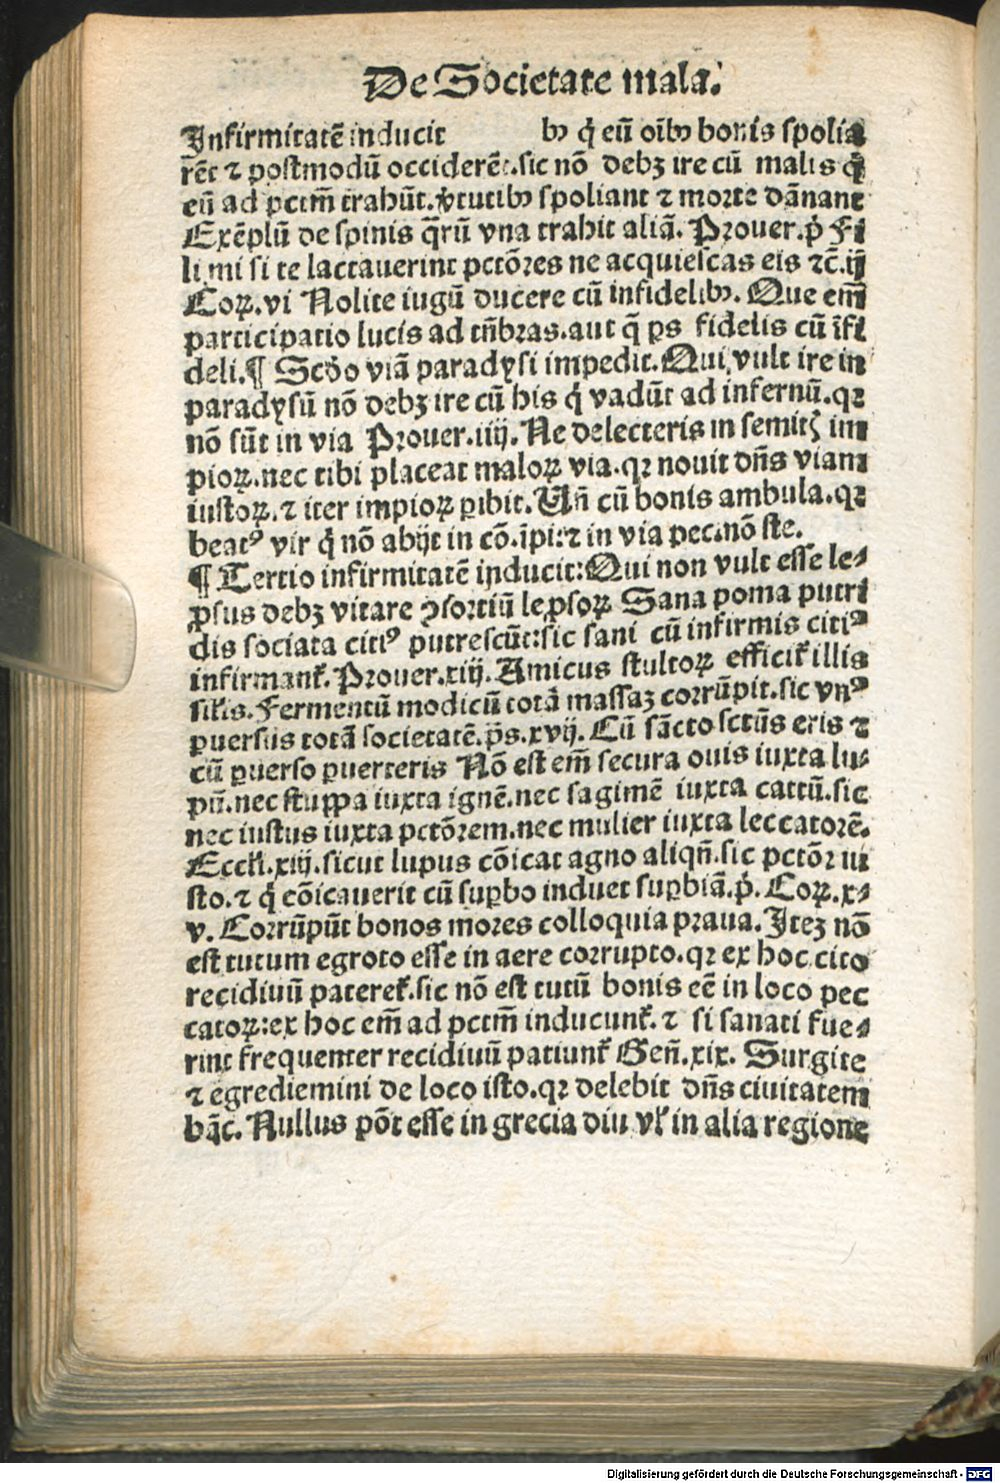 De Societate mala.
Infirmitatē inducit bꝰ q̇ eū oībꝰ bonis spolia
rēt ⁊ postmodū occiderēt.sic nō debꝫ ire cū malis q̇
eū ad pctm̄ trahūt.v̓tutibꝰ spoliant ⁊ morte dānant
Exēplū de spinis q̄rū vna trahit aliā. Prouer.ṗ Fi
li mi si te lactauerint pctōres ne acquiescas eis ⁊c̄.ij
Coꝝ.vi Nolite iugū ducere cū infidelibꝰ. Que em̄
participatio lucis ad tn̄bras.aut q̄ ꝑs fidelis cū īfi
deli.¶ Scḋo viā paradysi impedit.Qui vult ire in
paradysū nō debꝫ ire cū his q̇ vadūt ad infernū.qꝛ
nō sūt in via Prouer.iiij. Ne delecteris in semitꝭ im
pioꝝ.nec tibi placeat maloꝝ via.qꝛ nouit dn̄s viam
iustoꝝ.⁊ iter impioꝝ ꝑibit.Un̄ cū bonis ambula.qꝛ
beatꝰ vir q̇ nō abijt in cō.īpi:⁊ in via pec.nō ste.
¶ Tertio infirmitatē inducit:Qui non vult esse le⸗
prsus debꝫ vitare ꝯsortiū leprsoꝝ Sana poma putri
dis sociata citiꝰ putrescūt:sic sani cū infirmis citiꝰ
infirmant᷑.Prouer.xiij.Amicus stultoꝝ efficit᷑ illis
sil̓is.Fermentū modicū totā massaꝫ corrūpit.sic vnꝰ
ꝑuersus totā societatē.p̄s.xvij. Cū sācto sctūs eris ⁊
cū ꝑuerso ꝑuerteris Nō est em̄ secura ouis iuxta lu⸗
pū.nec stuppa iuxta ignē.nec sagimē iuxta cattū.sic
nec iustus iuxta pctōrem.nec mulier iuxta leccatorē.
Eccl̓i.xiij.sicut lupus cōicat agno aliqn̄.sic pctōr iu
sto.⁊ q̇ cōicauerit cū suꝑbo induet suꝑbiā.ṗ. Coꝝ.x⸗
v. Corrūpūt bonos mores colloquia praua.Iteꝫ nō
est tutum egroto esse in aere corrupto.qꝛ ex hoc cito
recidiuū pateret᷑.sic nō est tutū bonis eē in loco pec
catoꝝ:ex hoc em̄ ad pctm̄ inducunt᷑.⁊ si sanati fue⸗
rint frequenter recidiuū patiunt᷑ Gen̄.xix. Surgite
⁊ egrediemini de loco isto.qꝛ delebit dn̄s ciuitatem
hāc. Nullus pōt esse in grecia diu vl̓ in alia regione
Digitalisierung gefördert durch die Deutsche Forschungsgemeinschaft - DFG